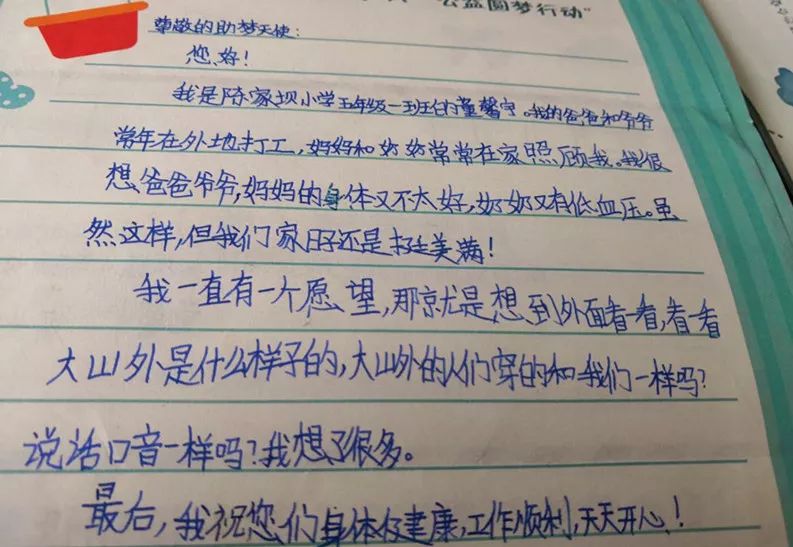 公益圆梦行动"
尊敬的助梦天使：
您好！
我是陈家坝小学五年级一班的董馨宁。我的爸爸和爷爷
常年在外地打工，妈妈和奶奶常常在家照顾我。我很
想爸爸爷爷，妈妈的身体又不太好，奶奶又有低血压。虽
然这样，但我们家日子还是挺美满！
我一直有一个愿望，那就是想到外面看一看，看一看
大山外是什么样子的，大山外的人们穿的和我们一样吗？
说话口音一样吗？我想了很多。
最后，我祝您们身体健康，工作顺利，天天开心！